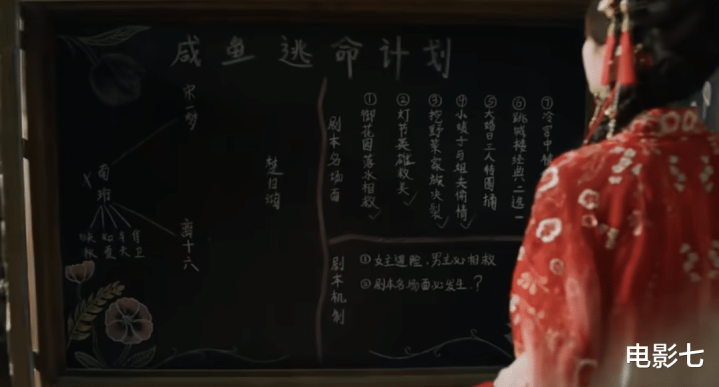 咸鱼逃命计划
宋一梦
南珩
离十六
楚归鸿
剧本名场面
①御花园落水相救
②灯节英雄救美
③挖野菜家族决裂
④小姨子与姐夫偷情
⑤大婚日三人转围捕
⑥跳城楼经典二选一
⑦冷宫中
剧本机制
①女主遇险，男主必相救
②剧本名场面必发生？
电影七